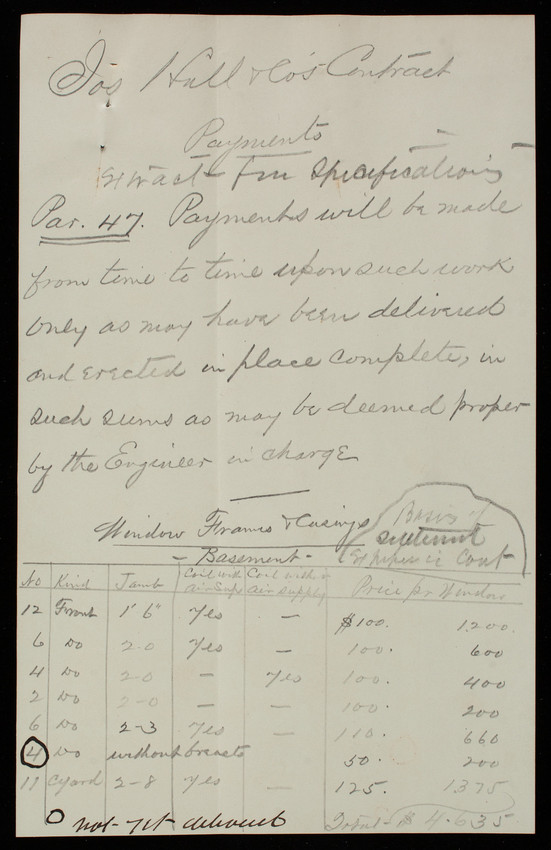 Jos Hall & Co's Contract
Payments
Extract from Specifications
Par. 47. Payments will be made
from time to time upon such work
only as may have been delivered
and erected in place complete, in
such sums as may be deemed proper
by the Engineer in charge
Window Frames & Casings
Basis of
settlement
- Basement -
Cont
No Kind Jamb Coil with air Sup Coil without air supply Price pr Window
12 Front 1' 6" Yes — $100. 1.200.
6 Do 2-0 Yes — 100. 600
4 Do 2-0 — Yes 100. 400
2 Do 2-0 — — 100. 200
6 Do 2-3 Yes — 110. 660
4 Do without breasts 50. 200
11 Cyard 2-8 Yes — 125. 1375
O not yet delivered Total $ 4.635.